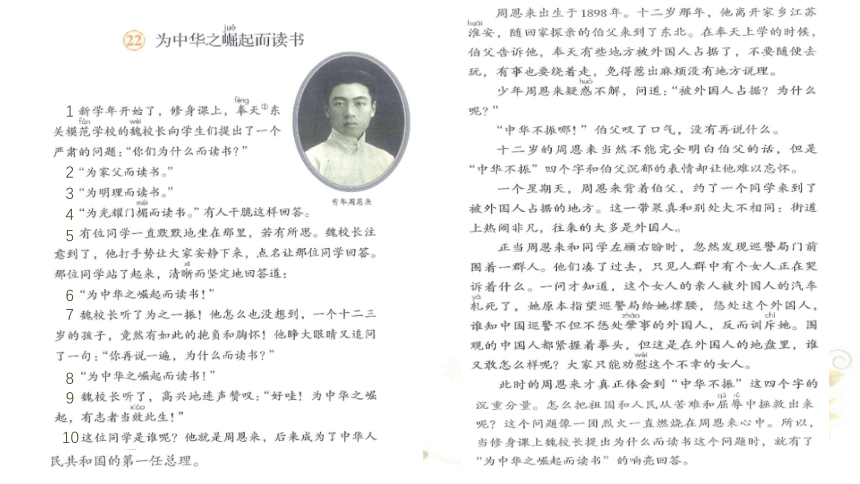 22 为中华之崛起而读书
jué
1 新学年开始了，修身课上，奉天①东
fèng
关模范学校的魏校长向学生们提出了一个
fàn wèi
严肃的问题：“你们为什么而读书？”
2 “为家父而读书。”
3 “为明理而读书。”
4 “为光耀门楣而读书。”有人干脆这样回答。
méi
5 有位同学一直默默地坐在那里，若有所思。魏校长注
意到了，他打手势让大家安静下来，点名让那位同学回答。
那位同学站了起来，清晰而坚定地回答道：
xī
6 “为中华之崛起而读书！”
7 魏校长听了为之一振！他怎么也没想到，一个十二三
岁的孩子，竟然有如此的抱负和胸怀！他睁大眼睛又追问
了一句：“你再说一遍，为什么而读书？”
8 “为中华之崛起而读书！”
9 魏校长听了，高兴地连声赞叹：“好哇！为中华之崛
起，有志者当效此生！”
xiào
10 这位同学是谁呢？他就是周恩来，后来成为了中华人
民共和国的第一任总理。
青年周恩来
周恩来出生于1898年。十二岁那年，他离开家乡江苏
huái
淮安，随回家探亲的伯父来到了东北。在奉天上学的时候，
伯父告诉他，奉天有些地方被外国人占据了，不要随便去
玩，有事也要绕着走，免得惹出麻烦没有地方说理。
huò
少年周恩来疑惑不解，问道：“被外国人占据？为什么
呢？”
“中华不振哪！”伯父叹了口气，没有再说什么。
十二岁的周恩来当然不能完全明白伯父的话，但是
“中华不振”四个字和伯父沉郁的表情却让他难以忘怀。
一个星期天，周恩来背着伯父，约了一个同学来到了
被外国人占据的地方。这一带果真和别处大不相同：街道
上热闹非凡，往来的大多是外国人。
正当周恩来和同学左顾右盼时，忽然发现巡警局门前
围着一群人。他们凑了过去，只见人群中有个女人正在哭
诉着什么。一问才知道，这个女人的亲人被外国人的汽车
yà
轧死了，她原本指望巡警局给她撑腰，惩处这个外国人，
zhào chì
谁知中国巡警不但不惩处肇事的外国人，反而训斥她。围
观的中国人都紧握着拳头，但这是在外国人的地盘里，谁
wèi
又敢怎么样呢？大家只能劝慰这个不幸的女人。
此时的周恩来才真正体会到“中华不振”这四个字的
qū rǔ
沉重分量。怎么把祖国和人民从苦难和屈辱中拯救出来
呢？这个问题像一团烈火一直燃烧在周恩来心中。所以，
当修身课上魏校长提出为什么而读书这个问题时，就有了
“为中华之崛起而读书”的响亮回答。